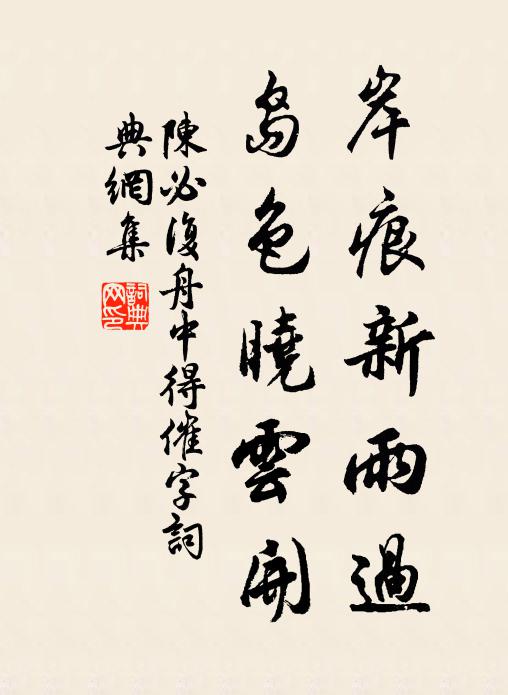 岸痕新雨過
島色曉雲開
陳必復舟中得催字詞
典網集
詞典
网印